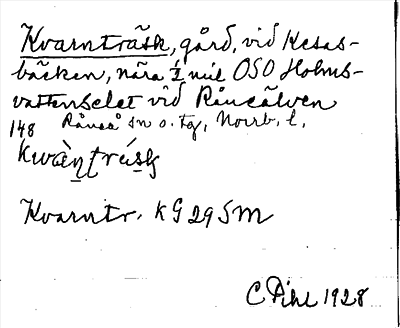 Kvarnträsk, gård, vid Kesas-
bäcken, nära ½ mil OSO Holms-
vattenselet vid Råneälven
148 Råneå sn o. tg, Norrb. l.
Kvarntr. KG 29 SM
C Pihl 1928